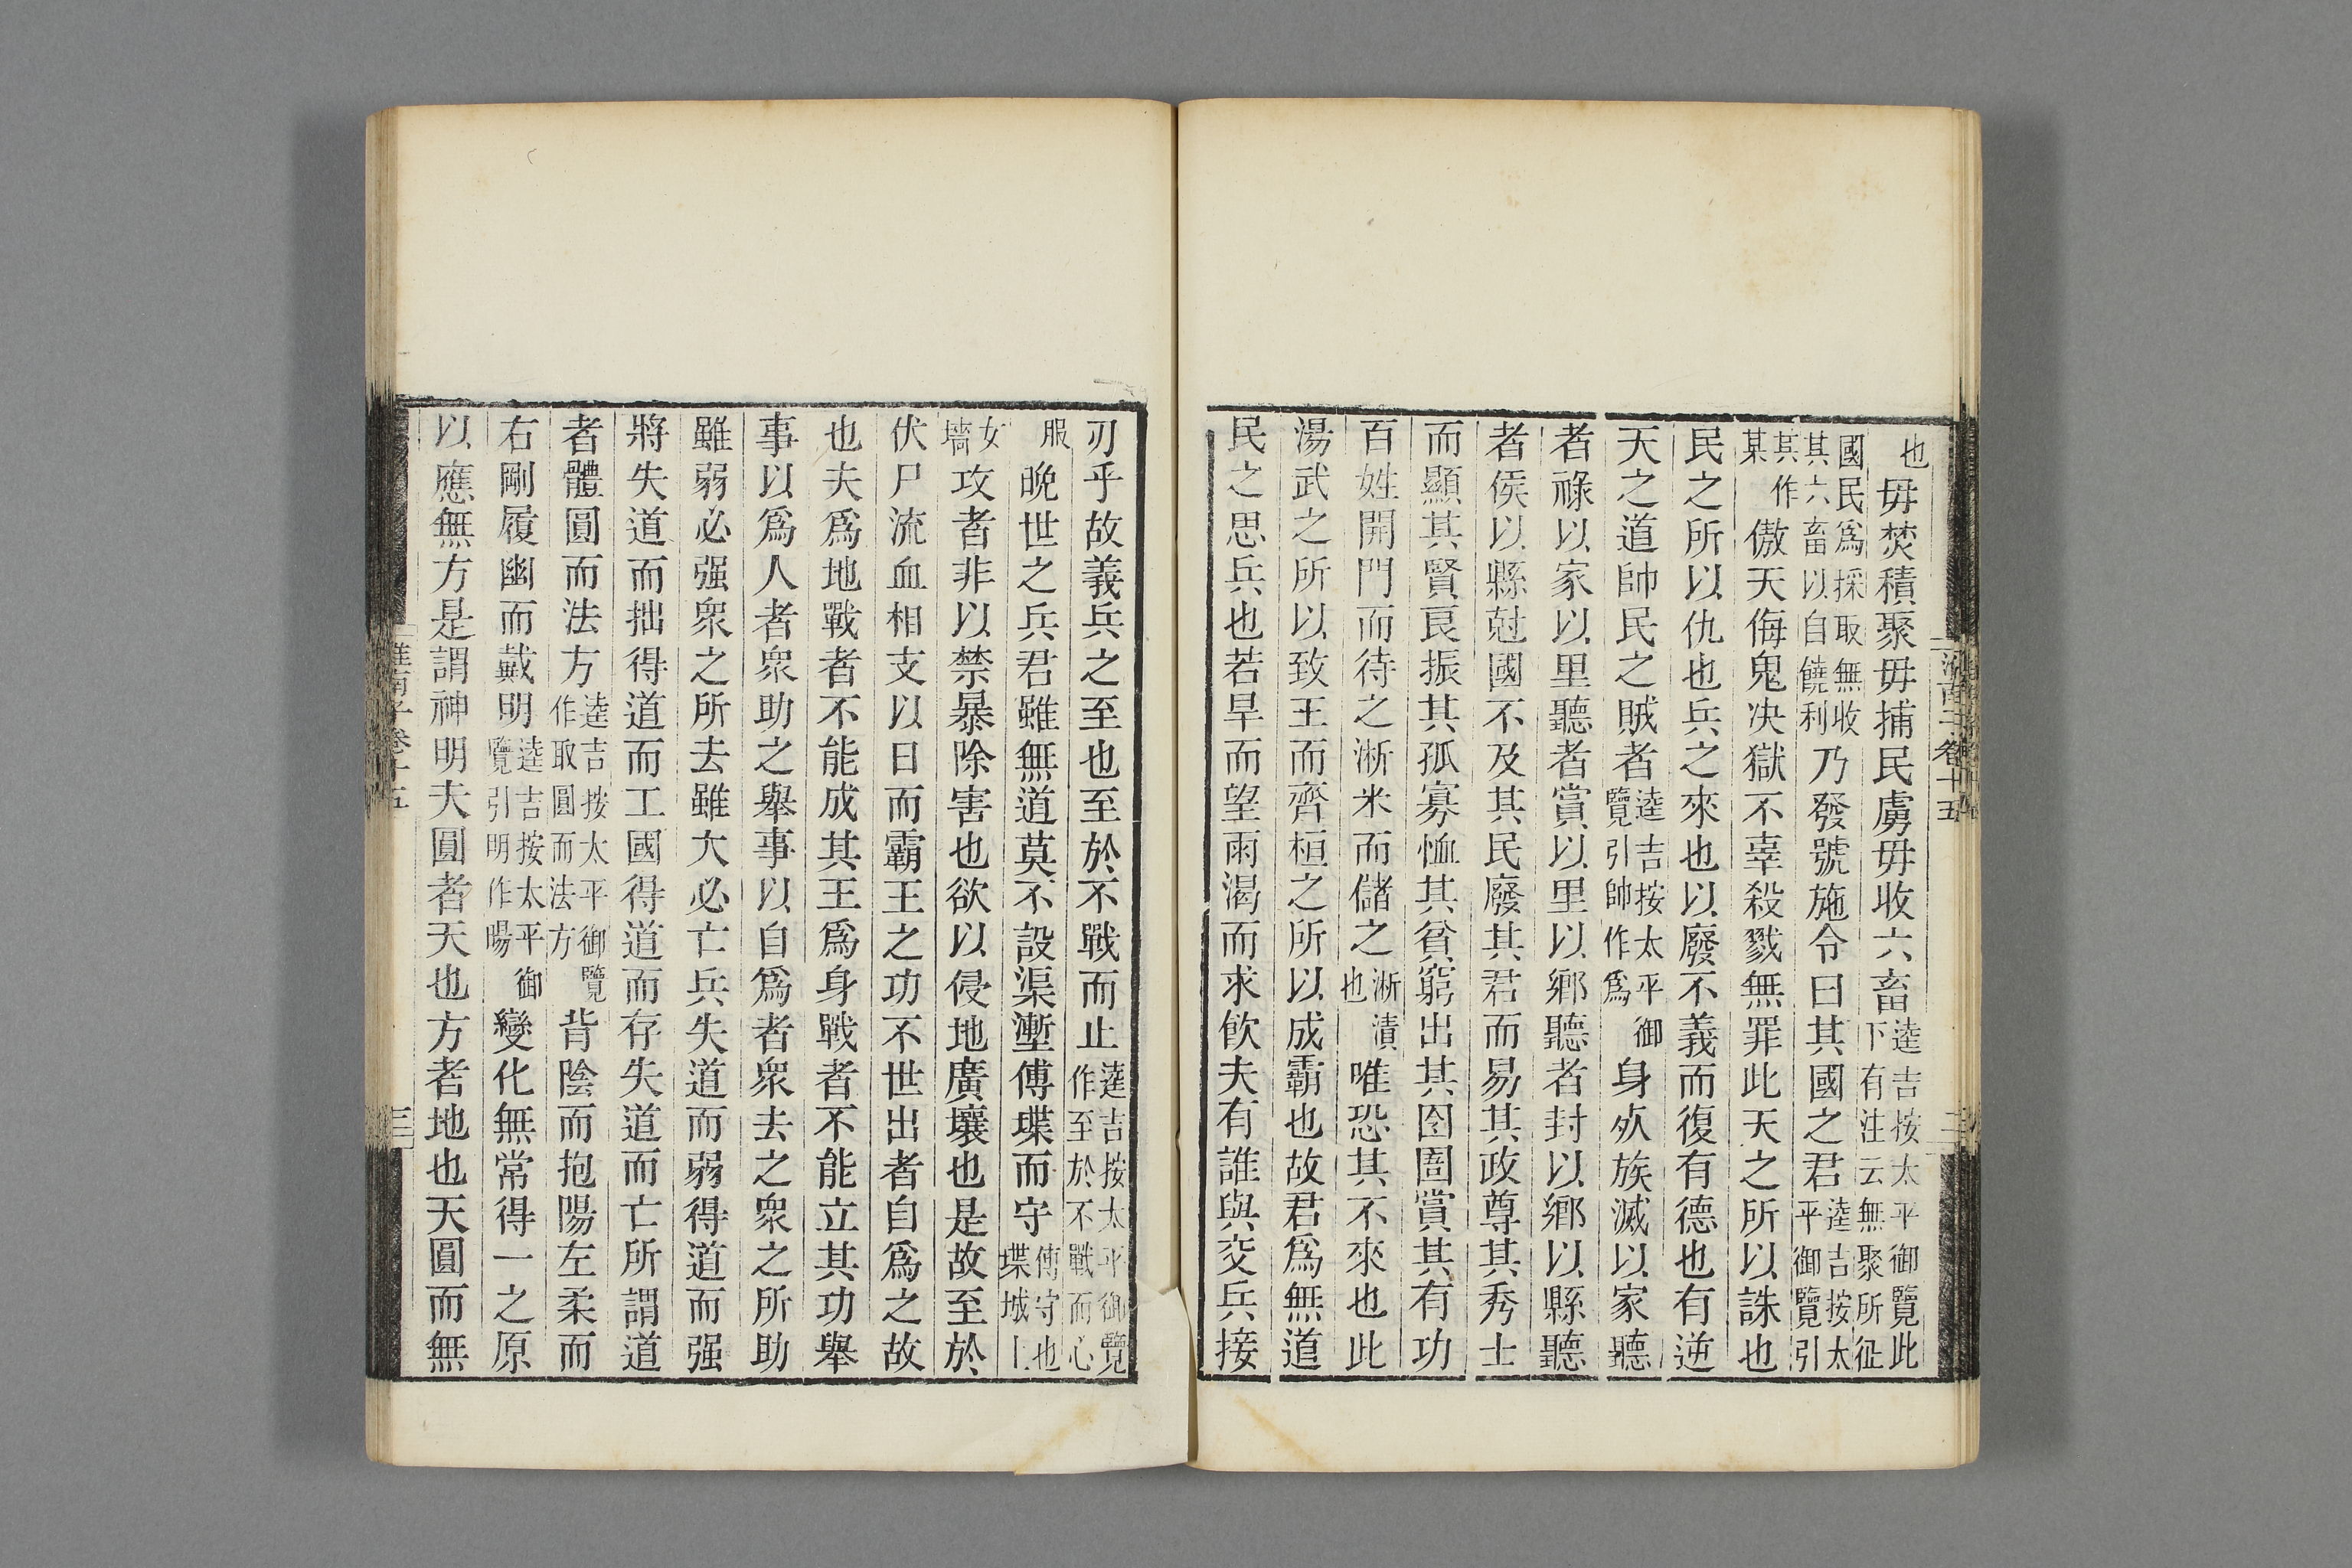 淮南子卷十五
三
也毋焚積聚毋捕民虜毋收六畜逵吉按太平御覽此下有注云無聚所征
國民爲採取無收其六畜以自饒利乃發號施令曰其國之君逵吉按太平御覽引
其作某傲天侮鬼决獄不辜殺戮無罪此天之所以誅也
民之所以仇也兵之來也以廢不義而復有德也有逆
天之道帥民之賊者逵吉按太平御覽引帥作爲身㱙族滅以家聽
者祿以家以里聽者賞以里以鄉聽者封以鄉以縣聽
者侯以縣尅國不及其民廢其君而易其政尊其秀士
而顯其賢良振其孤寡恤其貧窮出其囹圄賞其有功
百姓開門而待之淅米而儲之淅漬也唯恐其不來也此
湯武之所以致王而齊桓之所以成霸也故君爲無道
民之思兵也若旱而望雨渴而求飲夫有誰與交兵接
刃乎故義兵之至也至於不戰而止逵吉按太平御覽作至於不戰而心
服晚世之兵君雖無道莫不設渠壍傅堞而守傅守也堞城上
女墻攻者非以禁暴除害也欲以侵地廣壤也是故至於
伏尸流血相支以日而霸王之功不世出者自爲之故
也夫爲地戰者不能成其王爲身戰者不能立其功舉
事以爲人者衆助之舉事以自爲者衆去之衆之所助
雖弱必强衆之所去雖大必亡兵失道而弱得道而强
將失道而拙得道而工國得道而存失道而亡所謂道
者體圓而法方逵吉按太平御覽作取圓而法方背陰而抱陽左柔而
右剛履幽而戴明逵吉按太平御覽引明作暘變化無常得一之原
以應無方是謂神明夫圓者天也方者地也天圓而無
淮南子卷十五
三